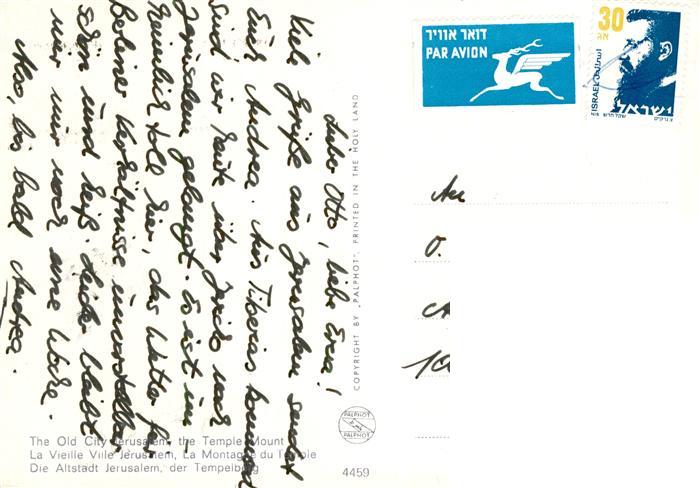 Lieber Otto, liebe Erna!
Viele Grüße aus Jerusalem sendet
Euch Andrea. Aus Tiberias kommend
sind wir heute über Jericho nach
Jerusalem gelangt. Es ist un-
heimlich toll hier, das Wetter für
Berliner Verhältnisse unvorstellbar
schön und heiß. Leider bleibt
mir nur noch eine Woche.
Also, bis bald Andrea.
COPYRIGHT BY „PALPHOT", PRINTED IN THE HOLY LAND
The Old City Jerusalem, the Temple Mount
La Vieille Ville Jerusalem, La Montagne du Temple
Die Altstadt Jerusalem, der Tempelberg
PALPHOT
PALPHOT
4459
דואר אוויר
PAR AVION
30
אג
ISRAEL
ישראל
An
O.